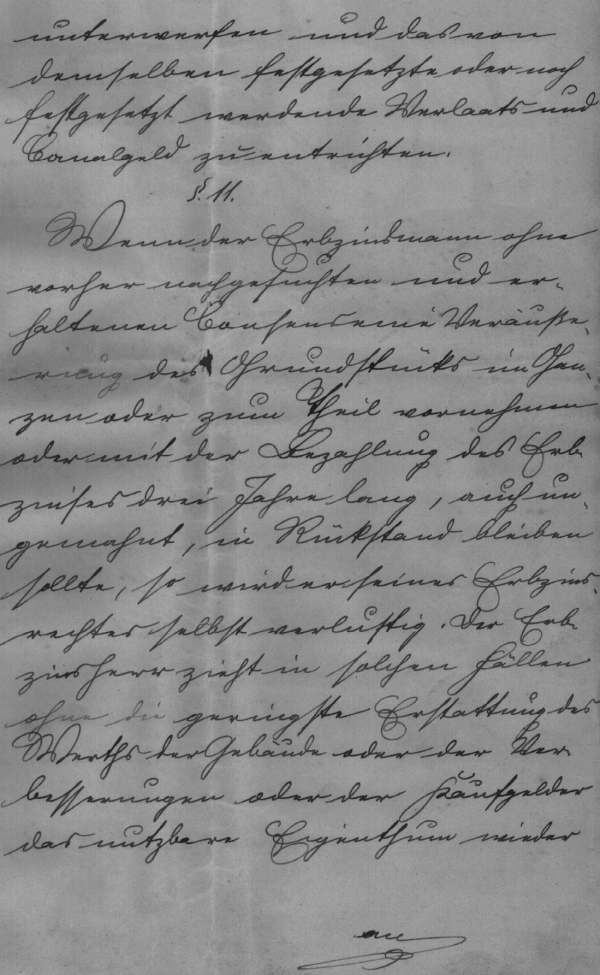 unterwerfen und das von
demselben festgesetzte oder noch
festgesetzt werdende Verlaats und
Canalgeld zu entrichten.
§. 11.
Wenn der Erbzinsmann ohne
vorher nachgesuchten und er-
haltenen Consens eine Veräuße-
rung des Grundstücks im Gan-
zen oder zum Theil vornehmen
oder mit der Bezahlung des Erb-
zinses drei Jahre lang, auch un-
gemahnt, in Rückstand bleiben
sollte, so wird er seines Erbzins-
rechtes selbst verlustig. Der Erb-
zinsherr zieht in solchen Fällen
ohne die geringste Erstattung des
Werths der Gebäude oder der Ver-
besserungen oder der Kaufgelder
das nutzbare Eigenthum wieder
an